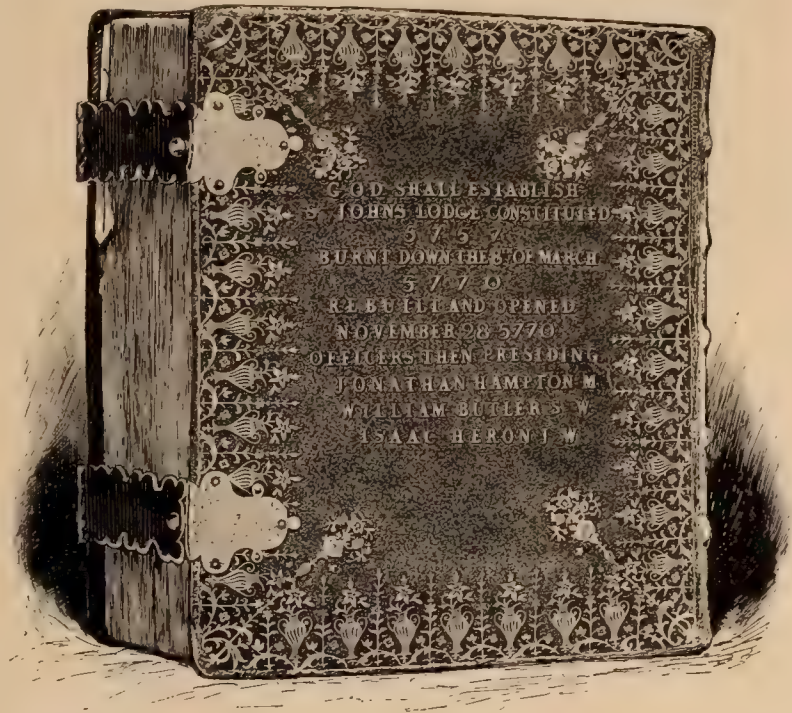 GOD SHALL ESTABLISH
S JOHNS LODGE CONSTITUTED
5757
BURNT DOWN THE 8TH OF MARCH
5770
REBUILT AND OPENED
NOVEMBER 28 5770
OFFICERS THEN PRESIDING
JONATHAN HAMPTON M
WILLIAM BUTLER S W
ISAAC HERON J W